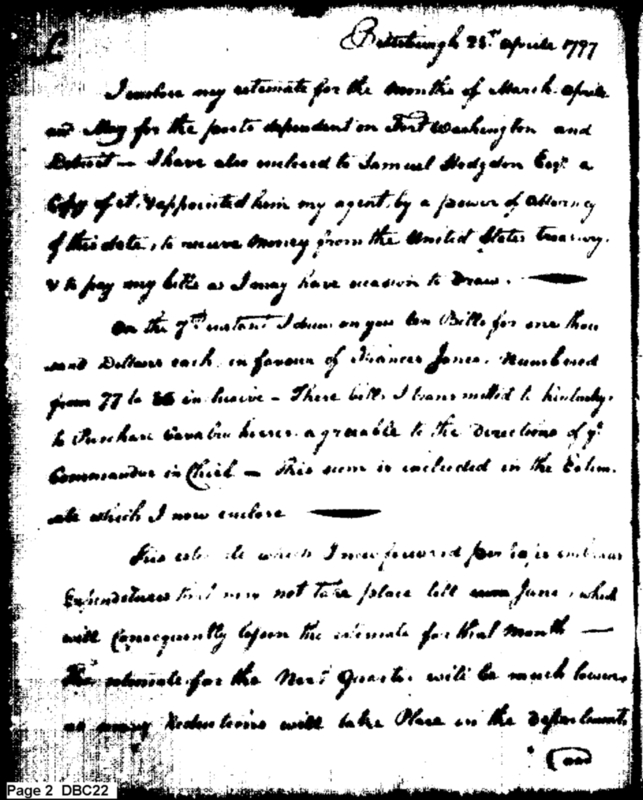 Pittsburgh 28th Aprile 1797
I enclose my estemate for the months of March. Aprile
and May for the posts dependent on Fort Washington and
Detroit — I have also enclosed to Samuel Hodgdon Esqr. a
Copy of it, & appointed him my agent, by a power of Attorney
of this date, to receive Money from the United States treasury.
& to pay my bills as I may have occasion to Draw.
On the 7th instant I drew on you ten Bills for one thou
sand Dollars each, in favour of Frances Jones. Numbered
from 77 to 86 inclusive — These bills I transmitted to Kentucky.
to Purchase Cavalry horses agreeable to the Directions of ye
Commander in Chief — This sum is included in the Estim.
ate which I now enclose
This estimate which I now forward perhaps embraces
Expenditures that may not take place till June, which
will Consequently lessen the estemate for that Month —
The estemate for the Next Quarter will be much lower,
as many Reductions will take Place in the Department,
and
Page 2 DBC22